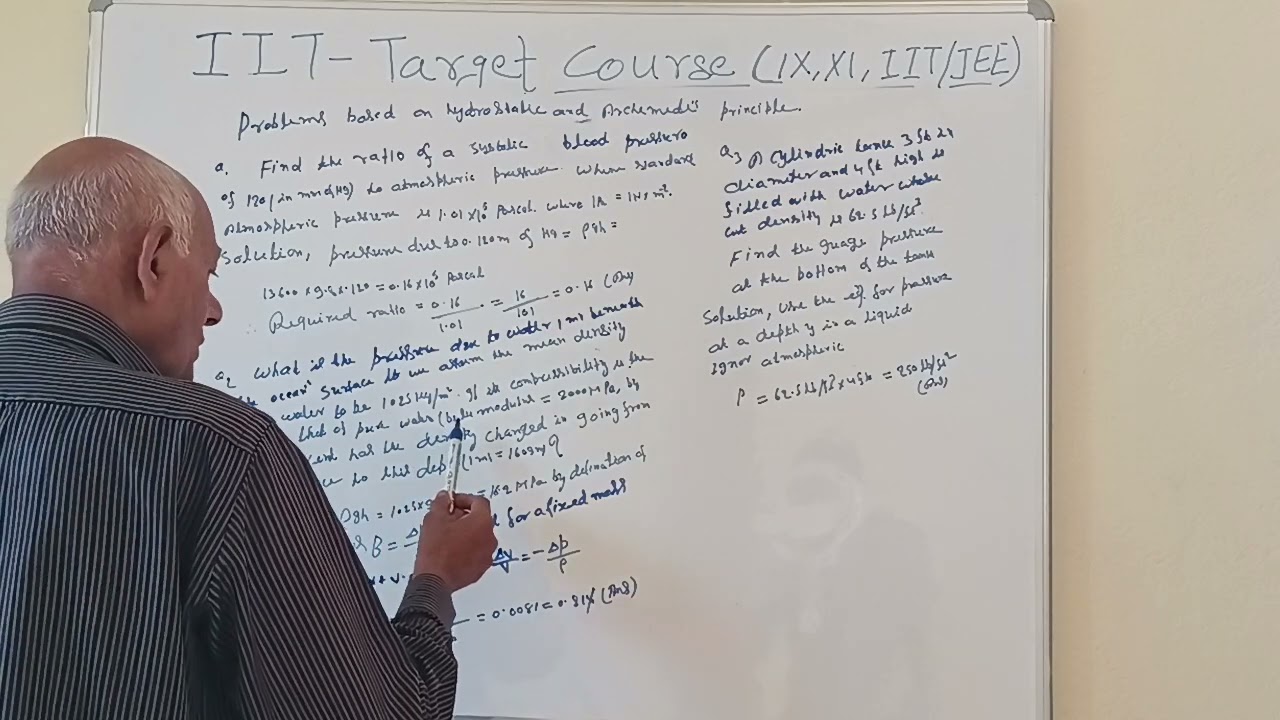 IIT-Target Course (IX, XI, IIT/JEE)
Problems based on hydrostatic and Archemedis principle.
Q1 Find the ratio of a systolic blood pressure
of 120 (in mm of Hg) to atmospheric pressure. Where standard
atmospheric pressure is 1.01×10⁵ Pascal. where 1Pa = 1N/m².
Solution, pressure due to 0.120m of Hg = ρgh =
13600×9.8×.120 = 0.16×10⁵ Pascal
∴ Required ratio = 0.16/1.01 = 16/101 = 0.16 (Ans)
Q2 What is the pressure due to water 1 mi beneath
ocean's surface if we assum the mean density
water to be 1025 kg/m³. If the compressibility is the
that of pure water (bulk modulus = 2000 MPa, by
has the density changed in going from
to this depth (1mi = 1609m)
ρgh = 1025× = 16.2 MPa by defination of
B = for a fixed mass
ΔV/V = -Δρ/ρ
= 0.0081 = 0.81% (Ans)
Q3 A cylindric tank 3 ft in
diameter and 4 ft high is
filled with water whose
density is 62.5 lb/ft³
Find the guage pressure
at the bottom of the tank
Solution, Use the eqn for pressure
at a depth y in a liquid
ignor atmospheric
P = 62.5 lb/ft³ × 4 ft = 250 lb/ft²
(Ans)